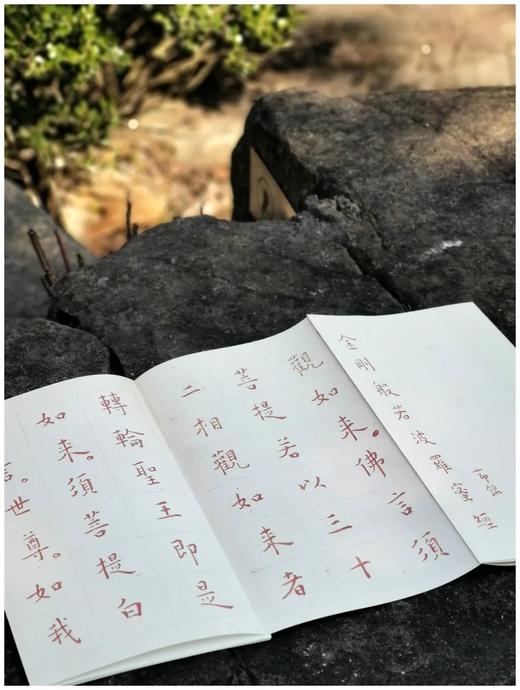 金剛般若波羅蜜經
觀如来。佛言須
菩提若以三十
二相觀如来者
轉輪聖王即是
如来。須菩提白
言。世尊。如我